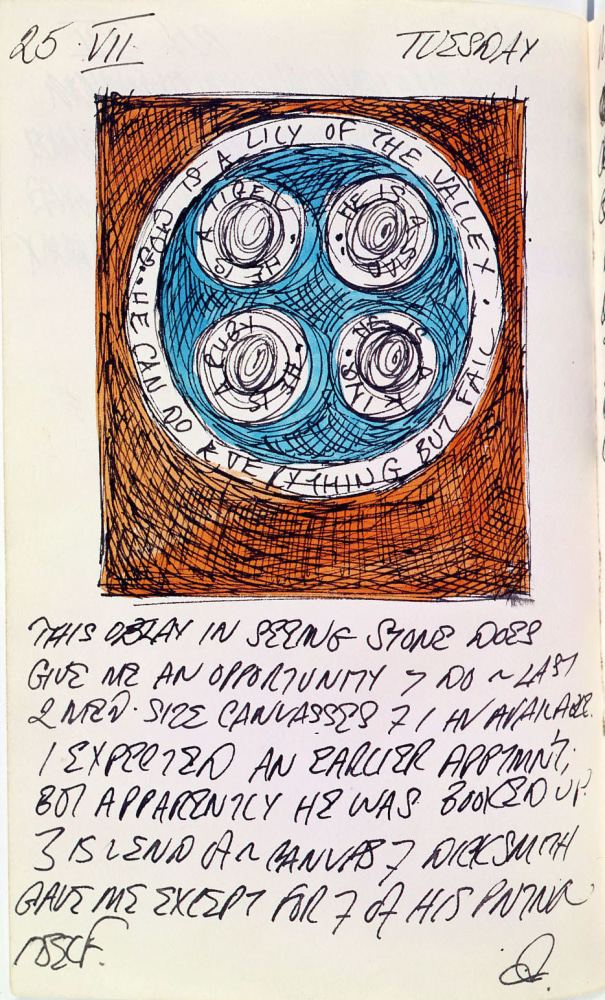 25 VII.
TUESDAY
GOD IS A LILY OF THE VALLEY. HE CAN DO EVERYTHING BUT FAIL
HE IS A TIGER
HE IS A STAR
HE IS A RUBY
HE IS A KING
THIS DELAY IN SEEING STONE DOES
GIVE ME AN OPPORTUNITY 7 DO ~ LAST
2 MED. SIZE CANVASSES 7 I AV AVAILABLE.
I EXPECTED AN EARLIER APPTMNT;
BUT APPARENTLY HE WAS BOOKED UP.
IS END OF ~ CANVAS 7 DICK SMITH
GAVE ME EXCEPT FOR 7 OF HIS PNTNG
ITSELF.